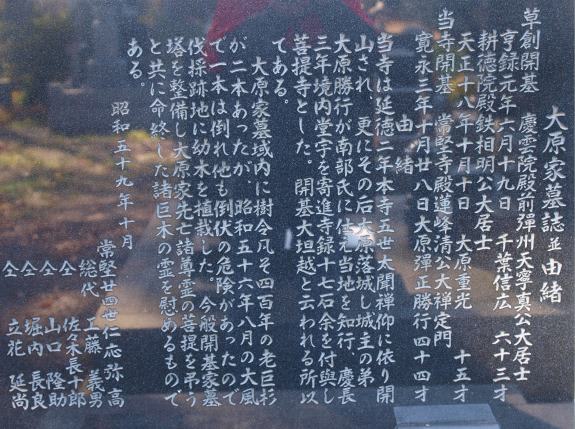 大原家墓誌並由緒
草創開基　慶雲院殿前彈州天寧真公大居士
亨録元年六月十九日　千葉信広　六十三才
耕徳院殿鉄相明公大居士
天正十八年十月十日　大原重光　十五才
当寺開基　常堅寺殿蓮峰清公大禅定門
寛永三年十月廿八日大原彈正勝行四十四才
由緒
当寺は延徳二年本寺五世太聞禅仰に依り開
山され、更にその后大原落城し城主の弟
大原勝行が南部氏に仕え当地を知行、慶長
三年境内堂宇を寄進寺録十七石余を付與し
菩提寺とした。開基大坦越と云われる所以
てある。
大原家墓域内に樹令凡そ四百年の老巨杉
が二本あったが、昭和五十六年八月の大風
で一本は倒れ他も倒伏の危険があったので
伐採跡地に幼木を植栽した。今般開基家墓
塔を整備し大原家先亡諸尊霊の菩提を弔う
と共に命終した諸巨木の霊を慰めるもので
ある。
昭和五十九年十月
常堅廿四世仁応弥高
総代　工藤　義男
仝　佐々木長十郎
仝　山口　隆助
仝　堀内　長良
仝　立花　延尚